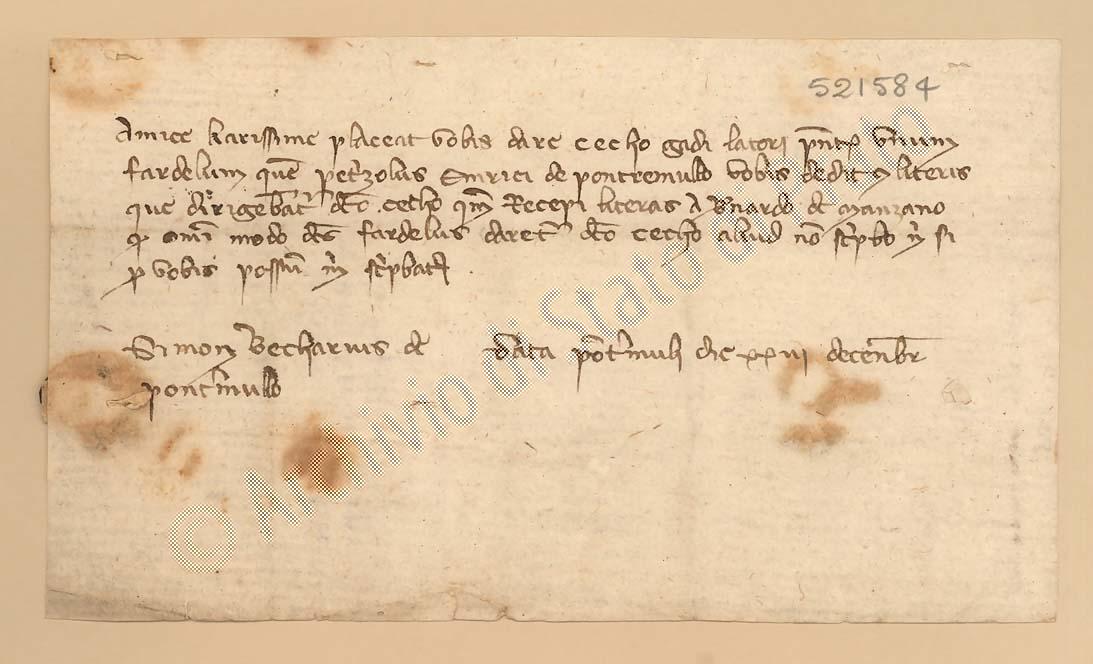 521584
Amice karissime placeat vobis dare cecho gadi latori pñt vnum
fardelum quē petrzolus Enrici de pontremulo vobis dedit 9 literis
que dirigebāt dc̄o cecho qm̄ Recepi literas A Bn̄ardo de Manzano
qd om̄i modo dc̄s fardelus daret dc̄o cecho aliud nō sc̄ribo n̄ si
p vobis possū m̄ sc̄ribatis
Simon Becharius de
pontr̄mullo
Data pōtr̄muli die xxvij decenbr
© Archivio di Stato di Prato